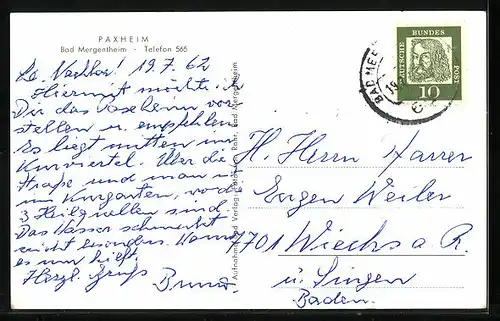 PAXHEIM
Bad Mergentheim - Telefon 565
19.7.62
Hiermit möchte ich
Dir das Paxheim vor-
stellen u. empfehlen
Es liegt mitten im
Kurviertel. Über die
Straße und man ist
im Kurgarten, wo die
3 Heilquellen sind.
Das Wasser schmeckt
nicht besonders. Wenn
es nur hilft.
Herzl. Gruß
Bruno
Aufnahme und Verlag Röhr, Bad Mergentheim
DEUTSCHE
BUNDES
POST
10
BAD MERG
H. Herrn Pfarrer
Eugen Weiler
7701 Wiechs a. R.
ü. Singen
Baden.